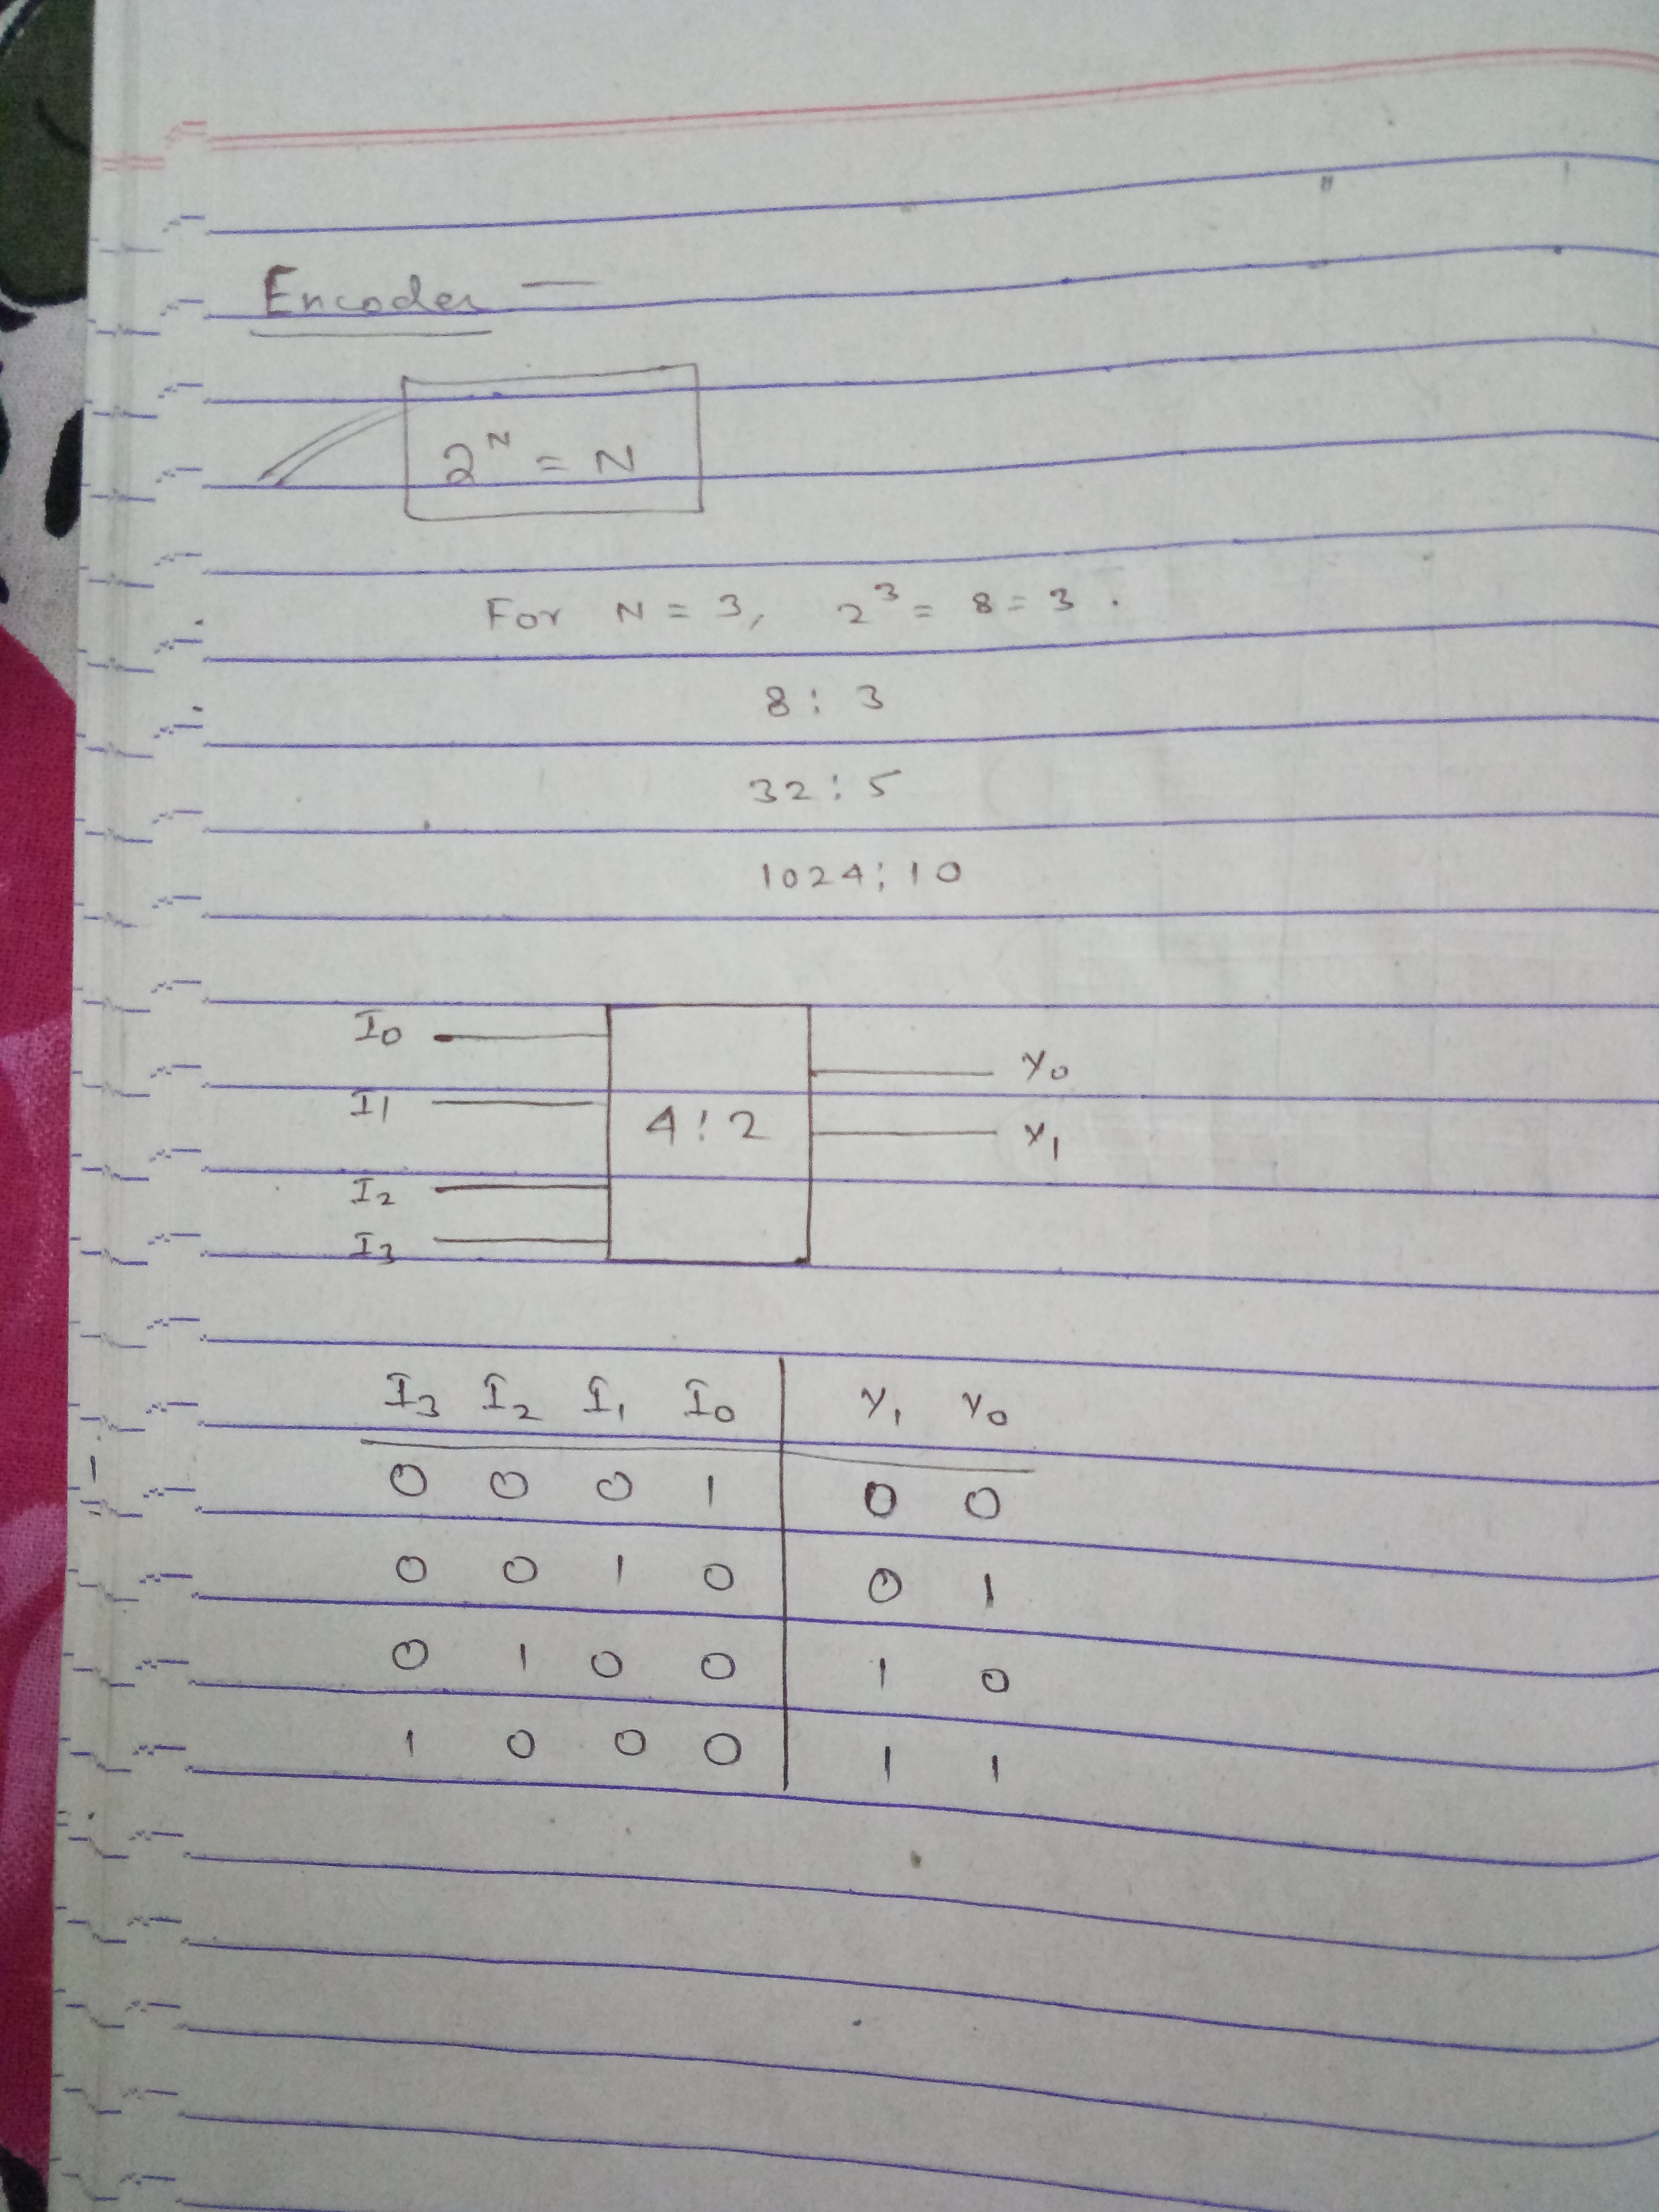 Encoder —
2^N = N
For N = 3, 2^3 = 8 = 3 .
8 : 3
32 : 5
1024 : 10
I0
Y0
I1
4 : 2
Y1
I2
I3
I3 I2 I1 I0 Y1 Y0
0 0 0 1 0 0
0 0 1 0 0 1
0 1 0 0 1 0
1 0 0 0 1 1